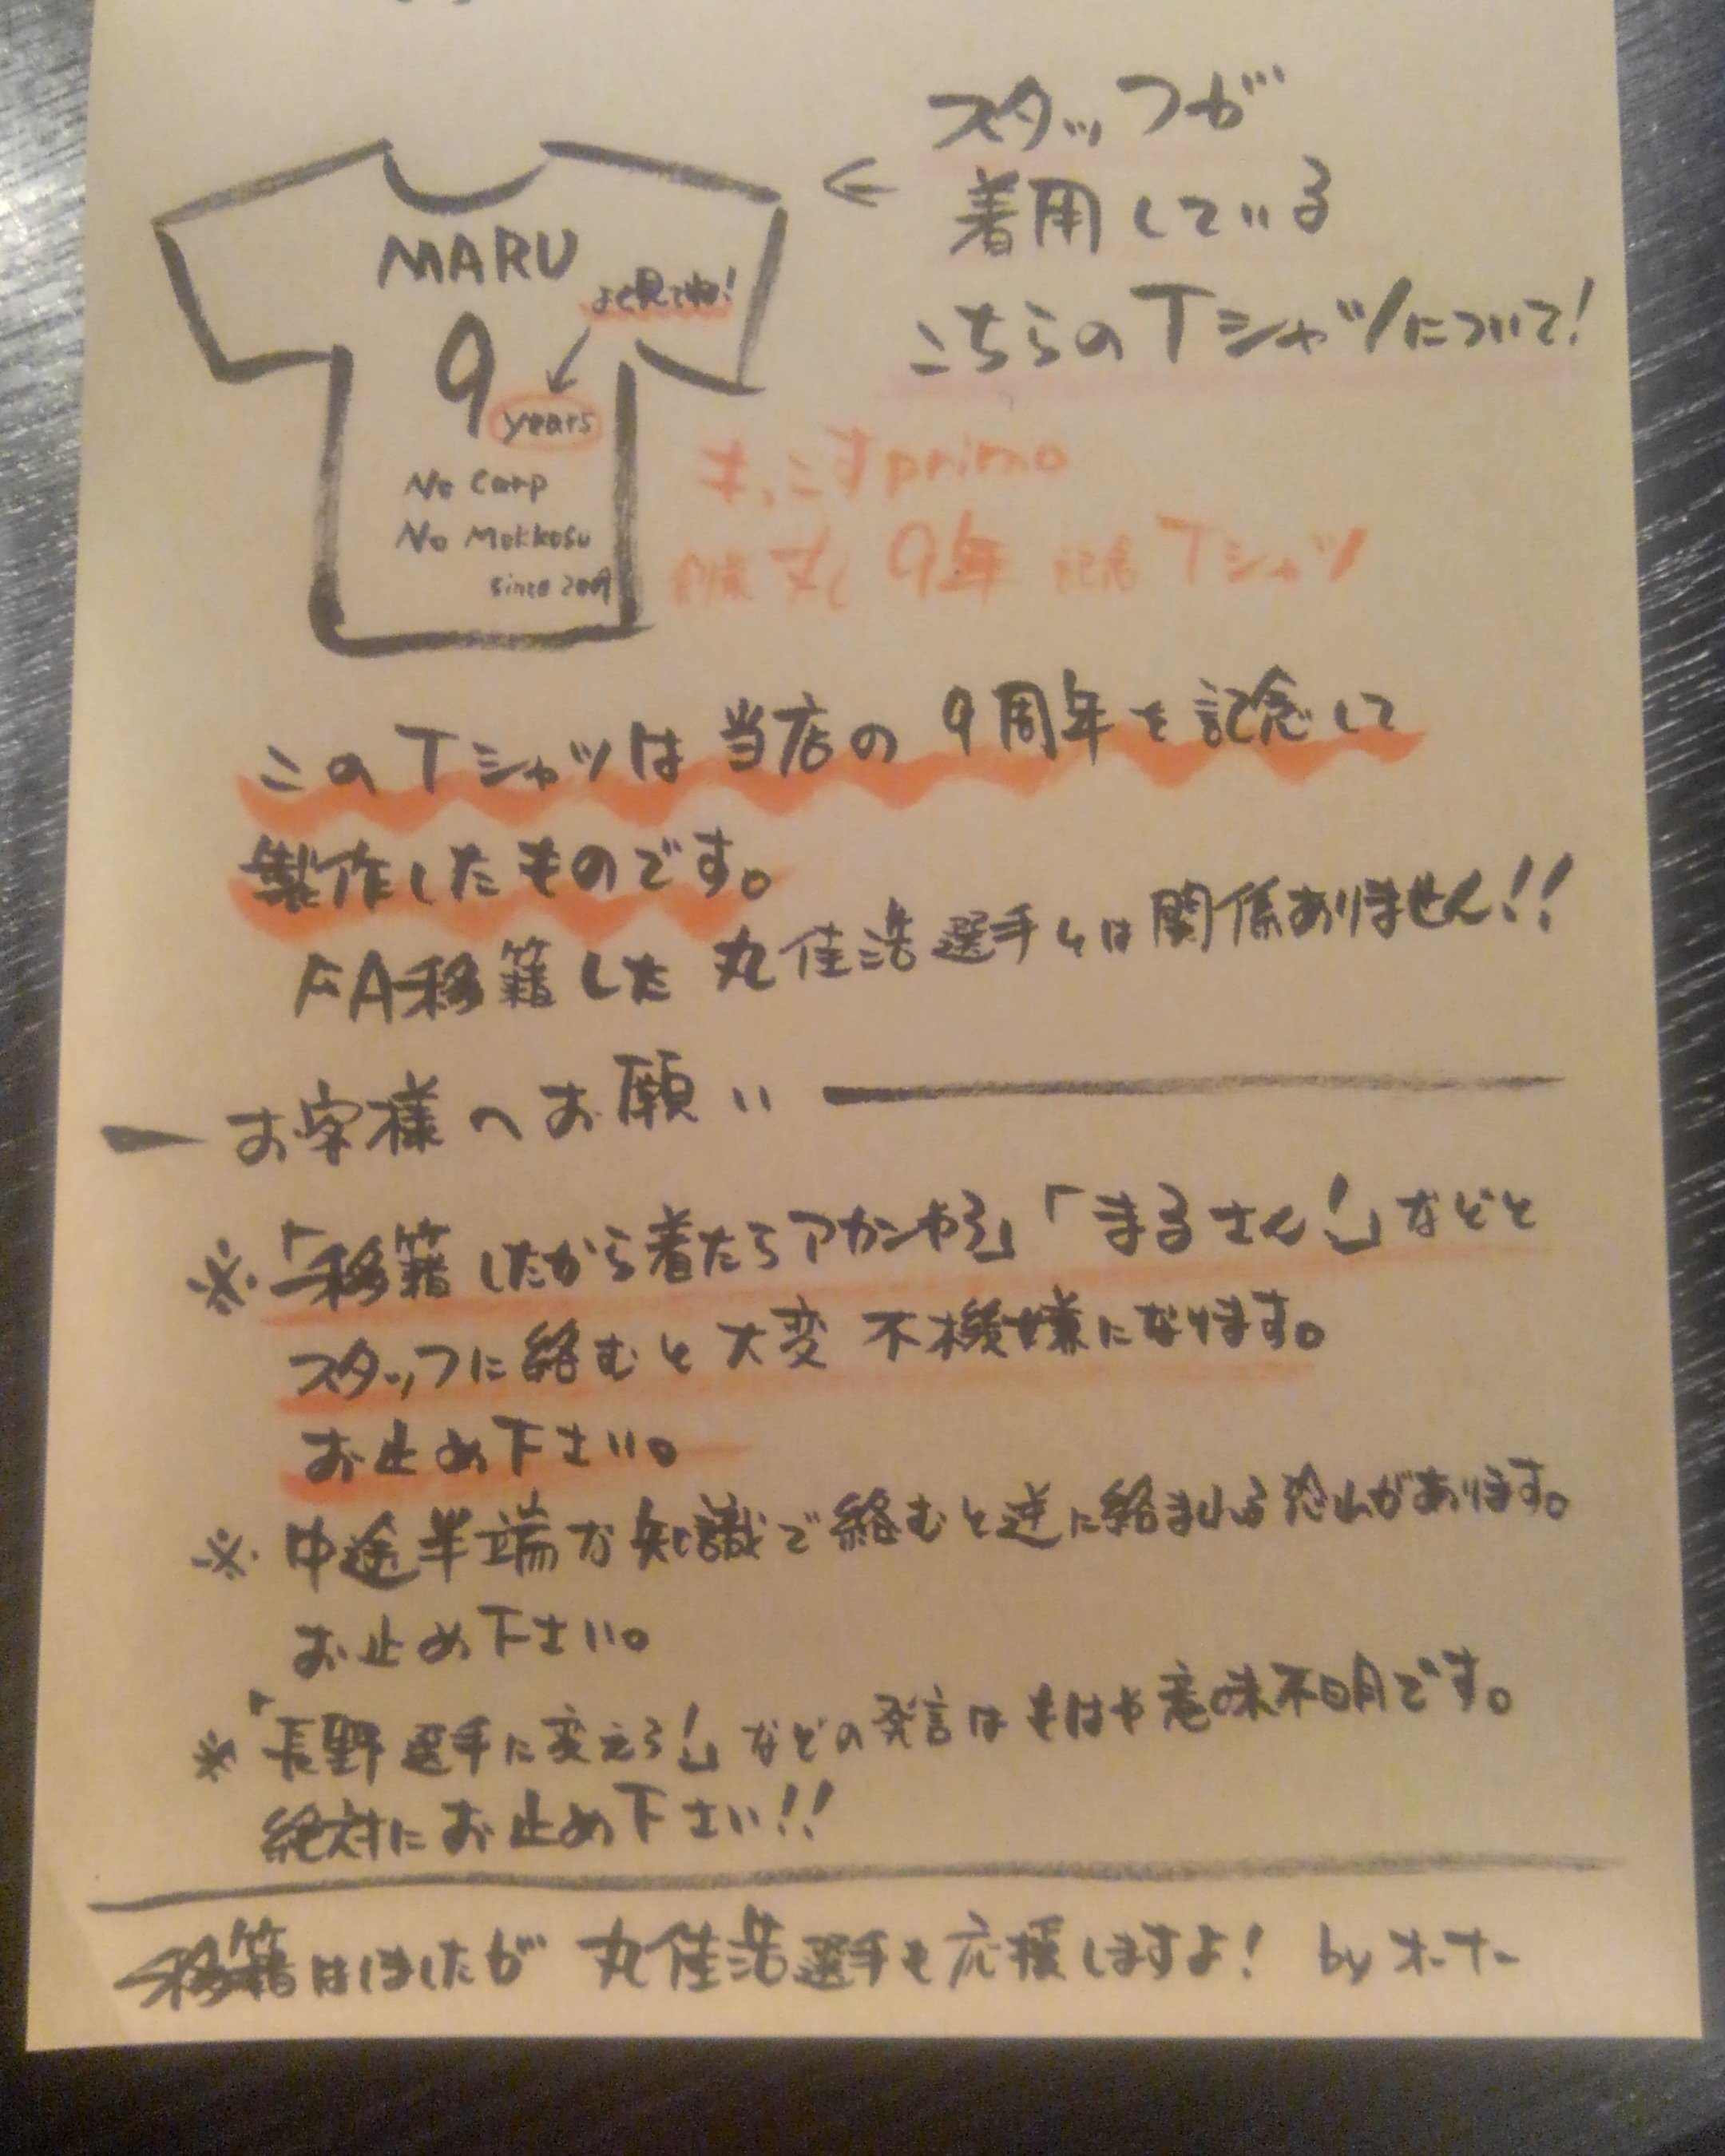 スタッフが
着用している
こちらのTシャツについて!
MARU
よく見てね!
9
years
No Carp
No Mokkosu
since 2009
もっこすprimo
創業 丸 9年 記念 Tシャツ
このTシャツは当店の9周年を記念して
製作したものです。
FA移籍した丸佳浩選手とは関係ありません!!
お客様へお願い
※「移籍したから着たらアカンやろ」「まるさん!」などと
スタッフに絡むと大変不機嫌になります。
お止め下さい。
※中途半端な知識で絡むと逆に絡まれる恐れがあります。
お止め下さい。
※「長野選手に変えろ!」などの発言はもはや意味不明です。
絶対にお止め下さい!!
移籍はしましたが 丸佳浩選手も応援しますよ! by オーナー